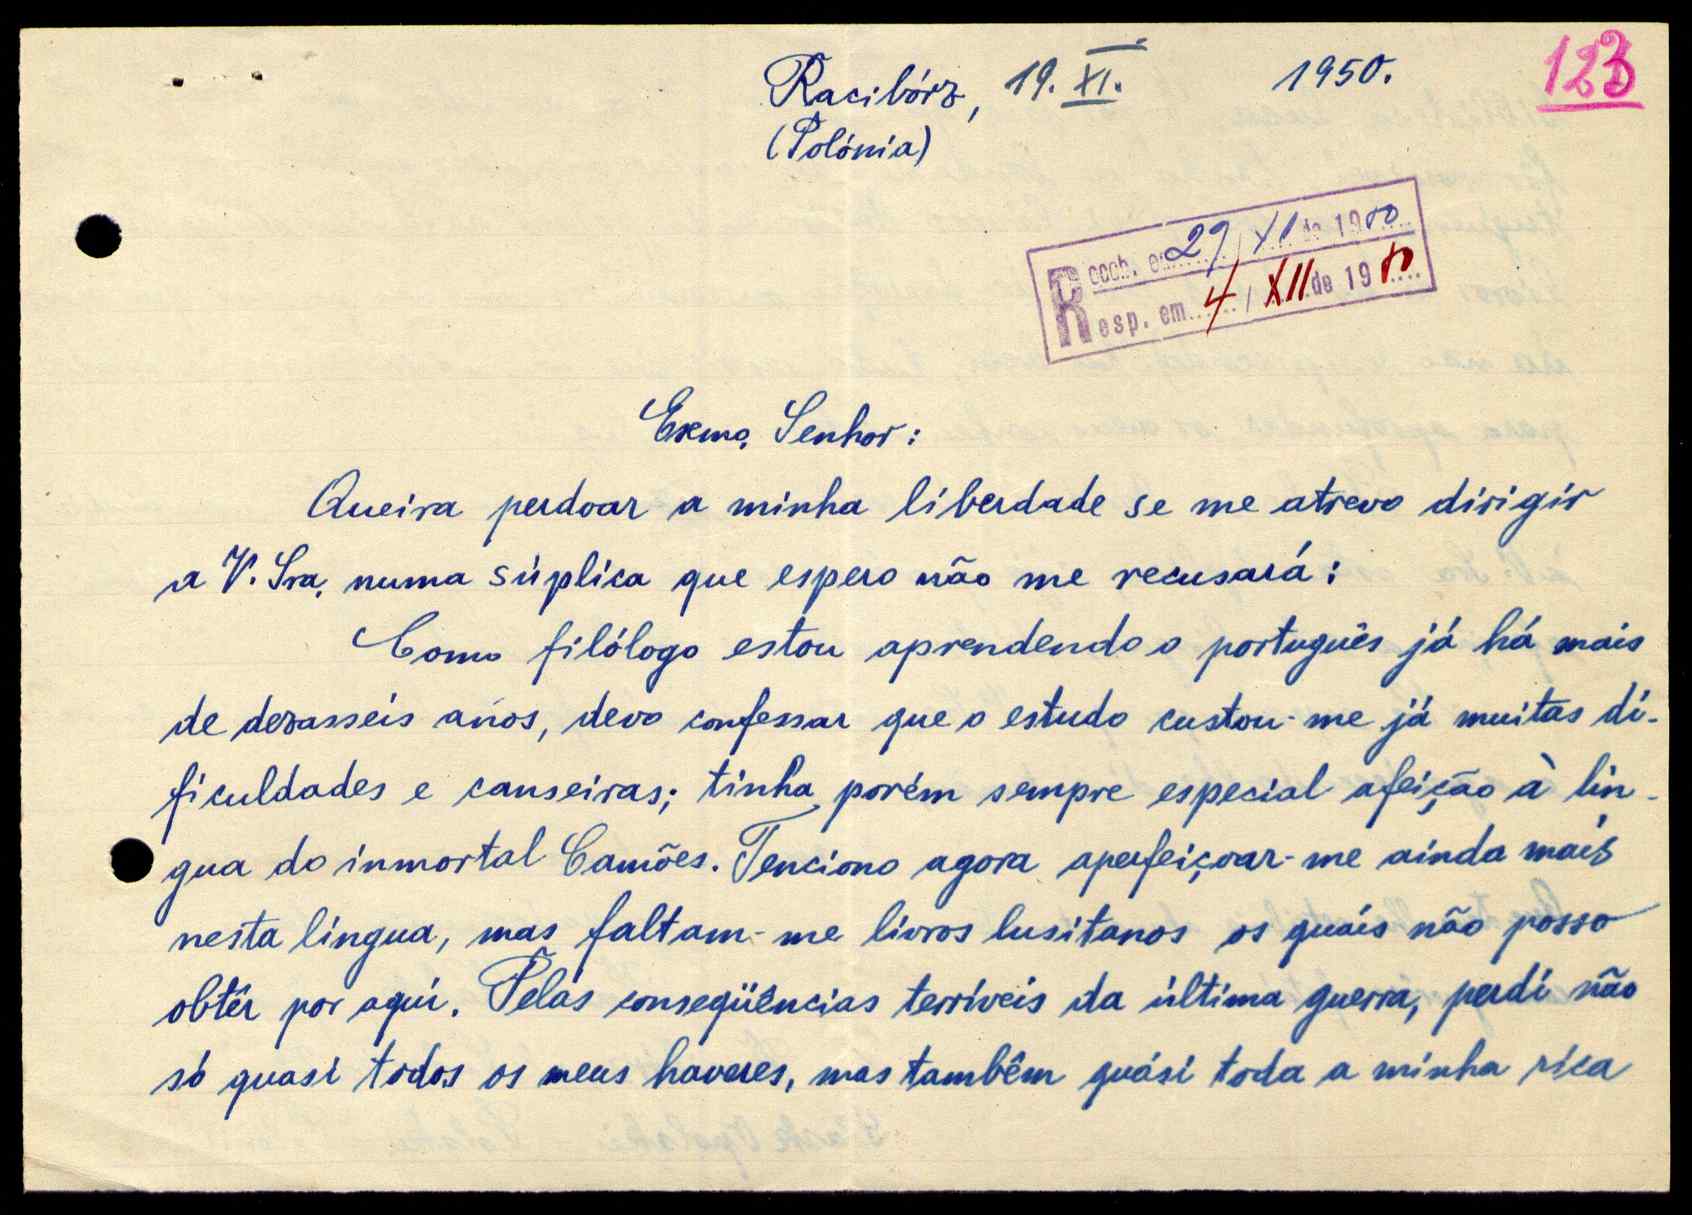 Racibórz, 19. XI. 1950.
123
(Polónia)
Receb. em 29 / XI de 1950
Resp. em 4 / XII de 1950
Exmo. Senhor:
Queira perdoar a minha liberdade se me atrevo dirigir
a V. Sra. numa súplica que espero não me recusará:
Como filólogo estou aprendendo o português já há mais
de dezasseis anos, devo confessar que o estudo custou-me já muitas di-
ficuldades e canseiras; tinha porém sempre especial afeição à lin-
gua do inmortal Camões. Tenciono agora aperfeiçoar-me ainda mais
nesta lingua, mas faltam-me livros lusitanos os quais não posso
obtêr por aqui. Pelas conseqüências terríveis da última guerra, perdi não
só quasi todos os meus haveres, mas tambêm quási toda a minha rica